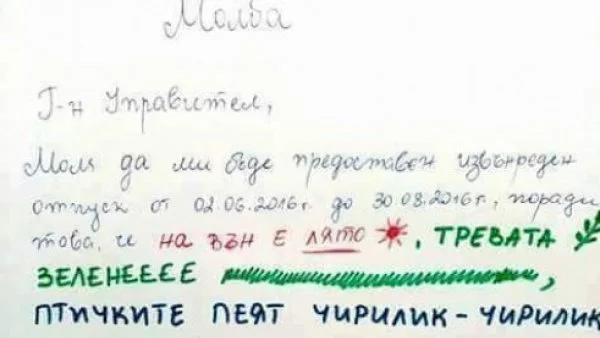 Молба
Г-н Управител,
Моля да ми бъде предоставен извънреден
отпуск от 02.06.2016г. до 30.08.2016г., поради
това, че на вън е лято, ТРЕВАТА
ЗЕЛЕНЕЕЕЕ,
ПТИЧКИТЕ ПЕЯТ ЧИРИЛИК-ЧИРИЛИК